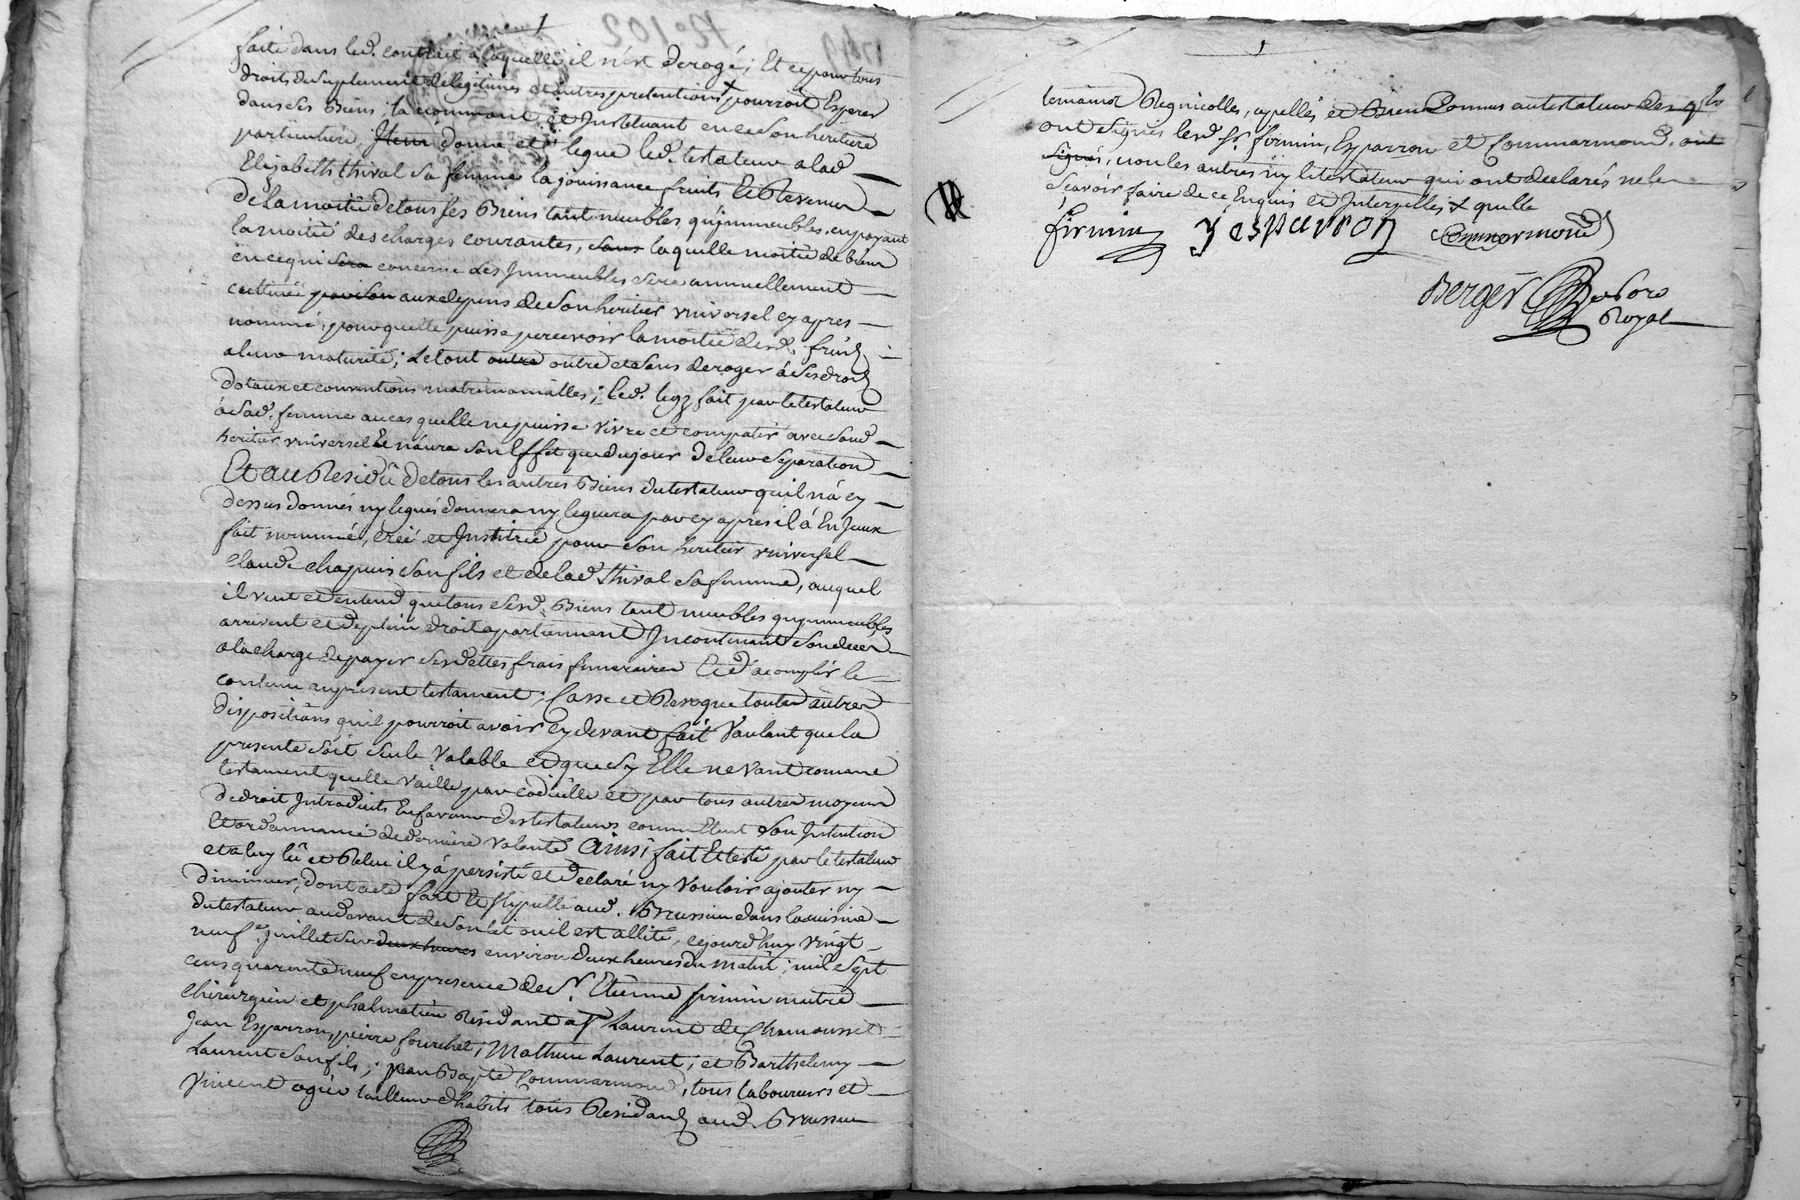 1
faite dans led. contract a laquelle il n'est derogé; Et ce pour tous
droits de suplement de legitimes et autres pretentions + pourroit Esperer
dans ses Biens la nommant et Instituant en ce son heritiere
particuliere, Item donne et legue led. testateur a lad
Elizabeth thival sa femme la jouissance fruits Et Revenus
de la moitié de tous ses Biens tant meubles qu'jmmeubles, en payant
la moitié des charges courantes, sans laquelle moitié de biens
en ce qui sera concerne les Jmmeubles sera annuellement
cultivée par son aux depens de son heritier universel cy apres
nommé, pour quelle puisse percevoir la moitié desd. fruits
a leur maturité; Le tout outre outre et sans deroger à ses droits
dotaux et conventions matrimonialles; led. legz fait par le testateur
à sad. femme au cas quelle ne puisse vivre et compatir avec sond
heritier universel Et n'aura son Effet que du jour de leur separation
Et au Residû de tous les autres Biens du testateur qu'il n'a cy
dessus donnés ny legués donnera ny leguera par cy apres il à
fait nommé, créé et Institué pour son heritier universel
Claude chapuis son fils et de lad thival sa femme, auquel
il veut et entend que tous sesd. Biens tant meubles qu'jmmeubles
arrivent et de plein droit apartiennent Incontinant son deces
a la charge de payer ses dettes frais funeraires Et d'acomplir le
contenu au present testament; Casse et Revoque toutes autres
dispositions qu'il pourroit avoir cy devant fait Voulant que la
presente soit seule valable et que sy Elle ne vaut comme
testament quelle vaille par codicille et par tous autres moyens
de droit Introduits En faveur des testateurs comm Etant son Intention
Et ordonnance de derniere volonté Ainsi fait Et testé par le testateur
et a luy lû et Relu il y a persisté et declaré ny vouloir ajouter ny
diminuer, dont acte fait Et stipullé aud. Brussieu dans la cuisine
du testateur au devant de son lit ou il est allité, cejourd'huy vingt
neufe juillet sur deux heures environ deux heures du matin; mil sept
cens quarante neuf en presence de Sr. Etienne firmin maitre
chirurgien et Residant a St Laurent de Chamousset
Jean Esparron, pierre fourchet; Mathieu Laurent; et Barthelemy
Laurent son fils; jean Bapte Commarmond, tous laboureurs et
Vincent ogier tailleur d'habits tous Residants aud. Brussieu
1
temoins Regnicolles, apellés et Bien Connus au testateur desquels
ont signés lesd Sr. firmin, Esparron et Commarmond, ont
signés, non les autres ny le testateur qui ont declarés ne le
scavoir faire de ce Enquis et Interpellés + quelle
firmin J esparron Commarmond
Berger
Royal